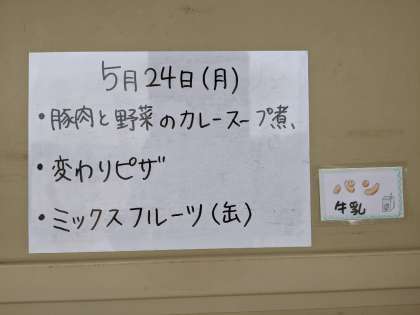 5月24日(月)
・豚肉と野菜のカレースープ煮、
・変わりピザ
・ミックスフルーツ(缶)
パン
牛乳